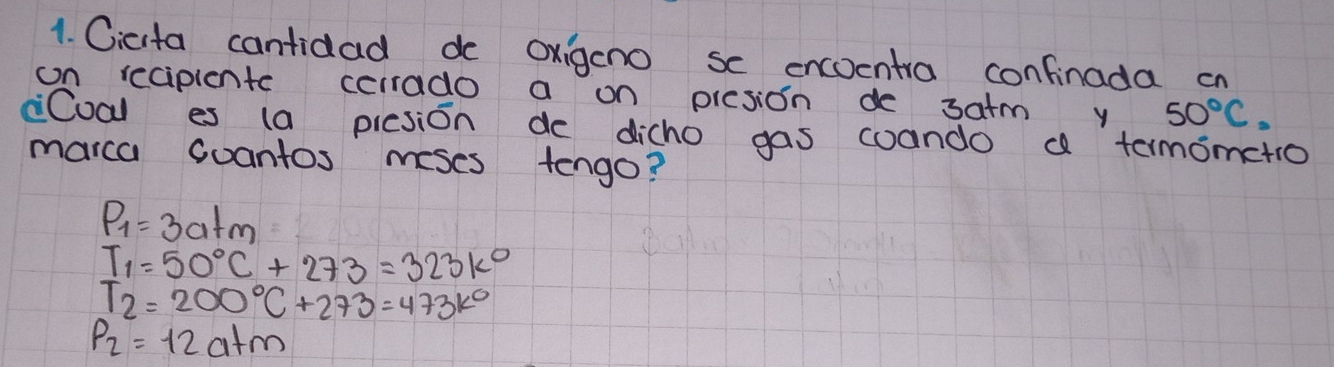 1. Cierta cantidad de oxígeno se encuentra confinada en
un recipiente cerrado a un presión de 3atm y 50°C.
¿Cual es la presión de dicho gas cuando el termómetro
marca cuantos meses tengo?
P1 = 3atm
T1 = 50°C + 273 = 323k°
T2 = 200°C + 273 = 473k°
P2 = 12 atm